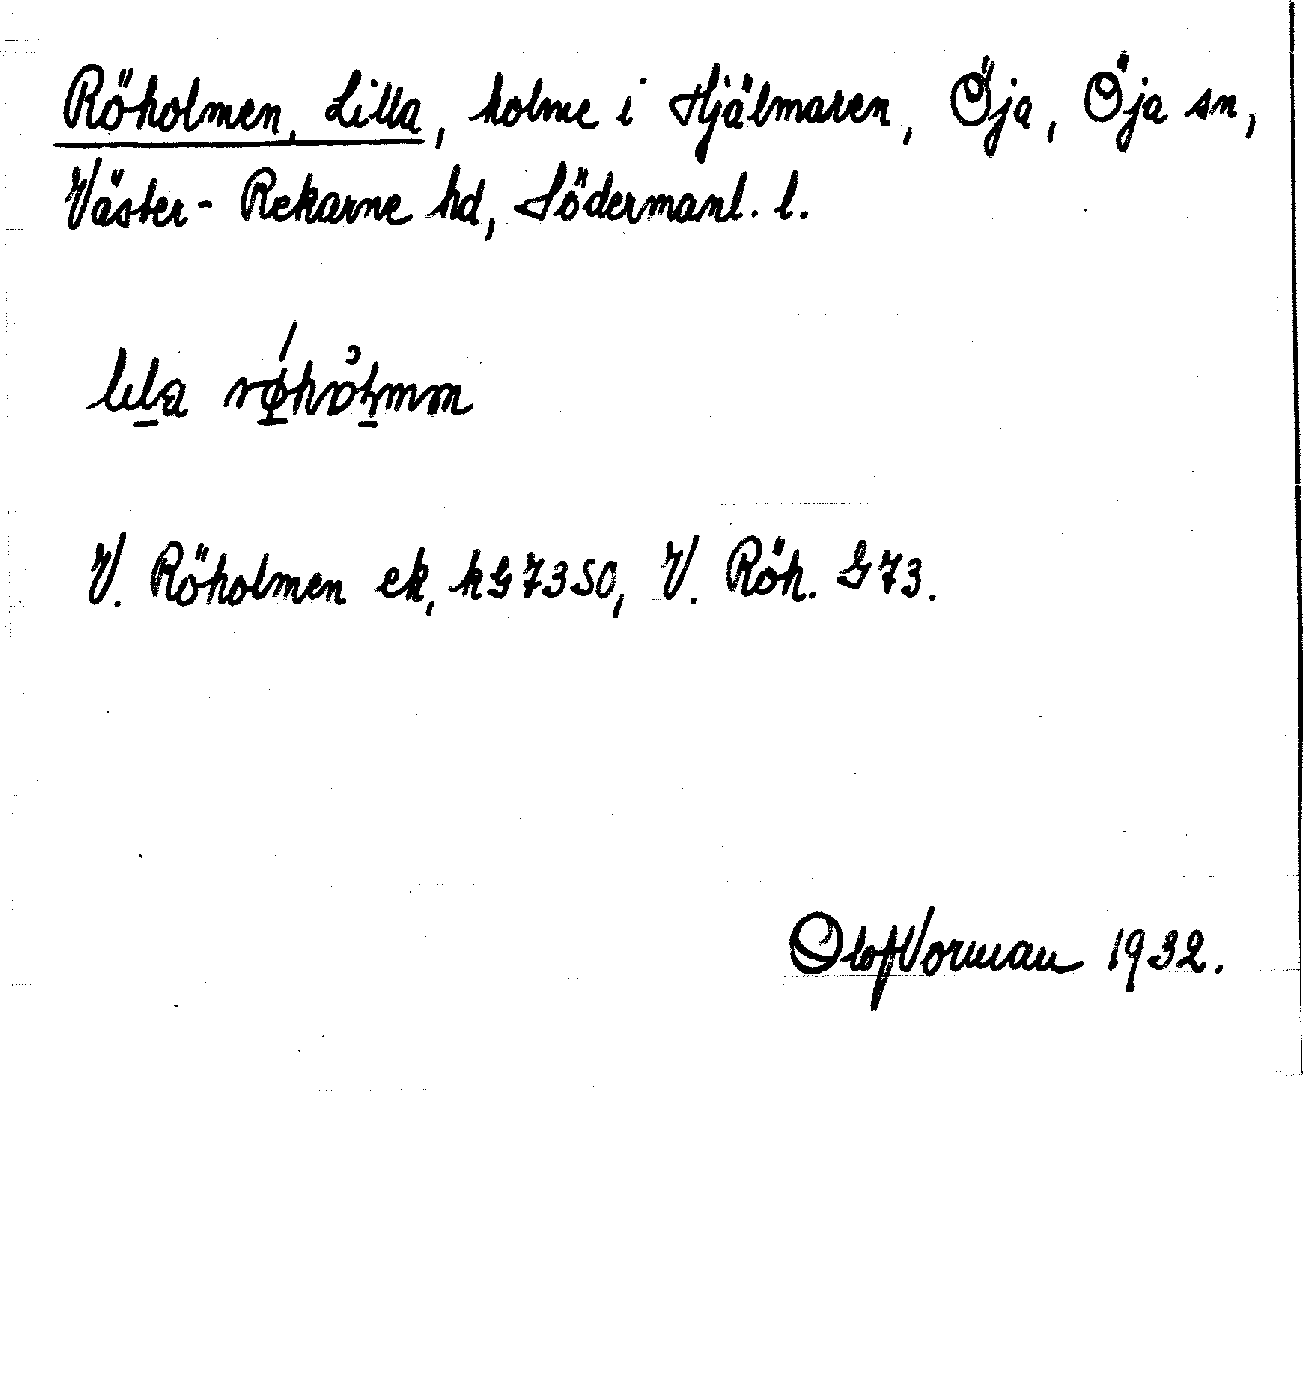 Röholmen, Lilla, holme i Hjälmaren, Öja, Öja sn,
Väster-Rekarne hd, Södermanl. l.
lila
V. Röholmen ek, kG7350, V. Röh. G73.
Olof Vorman 1932.